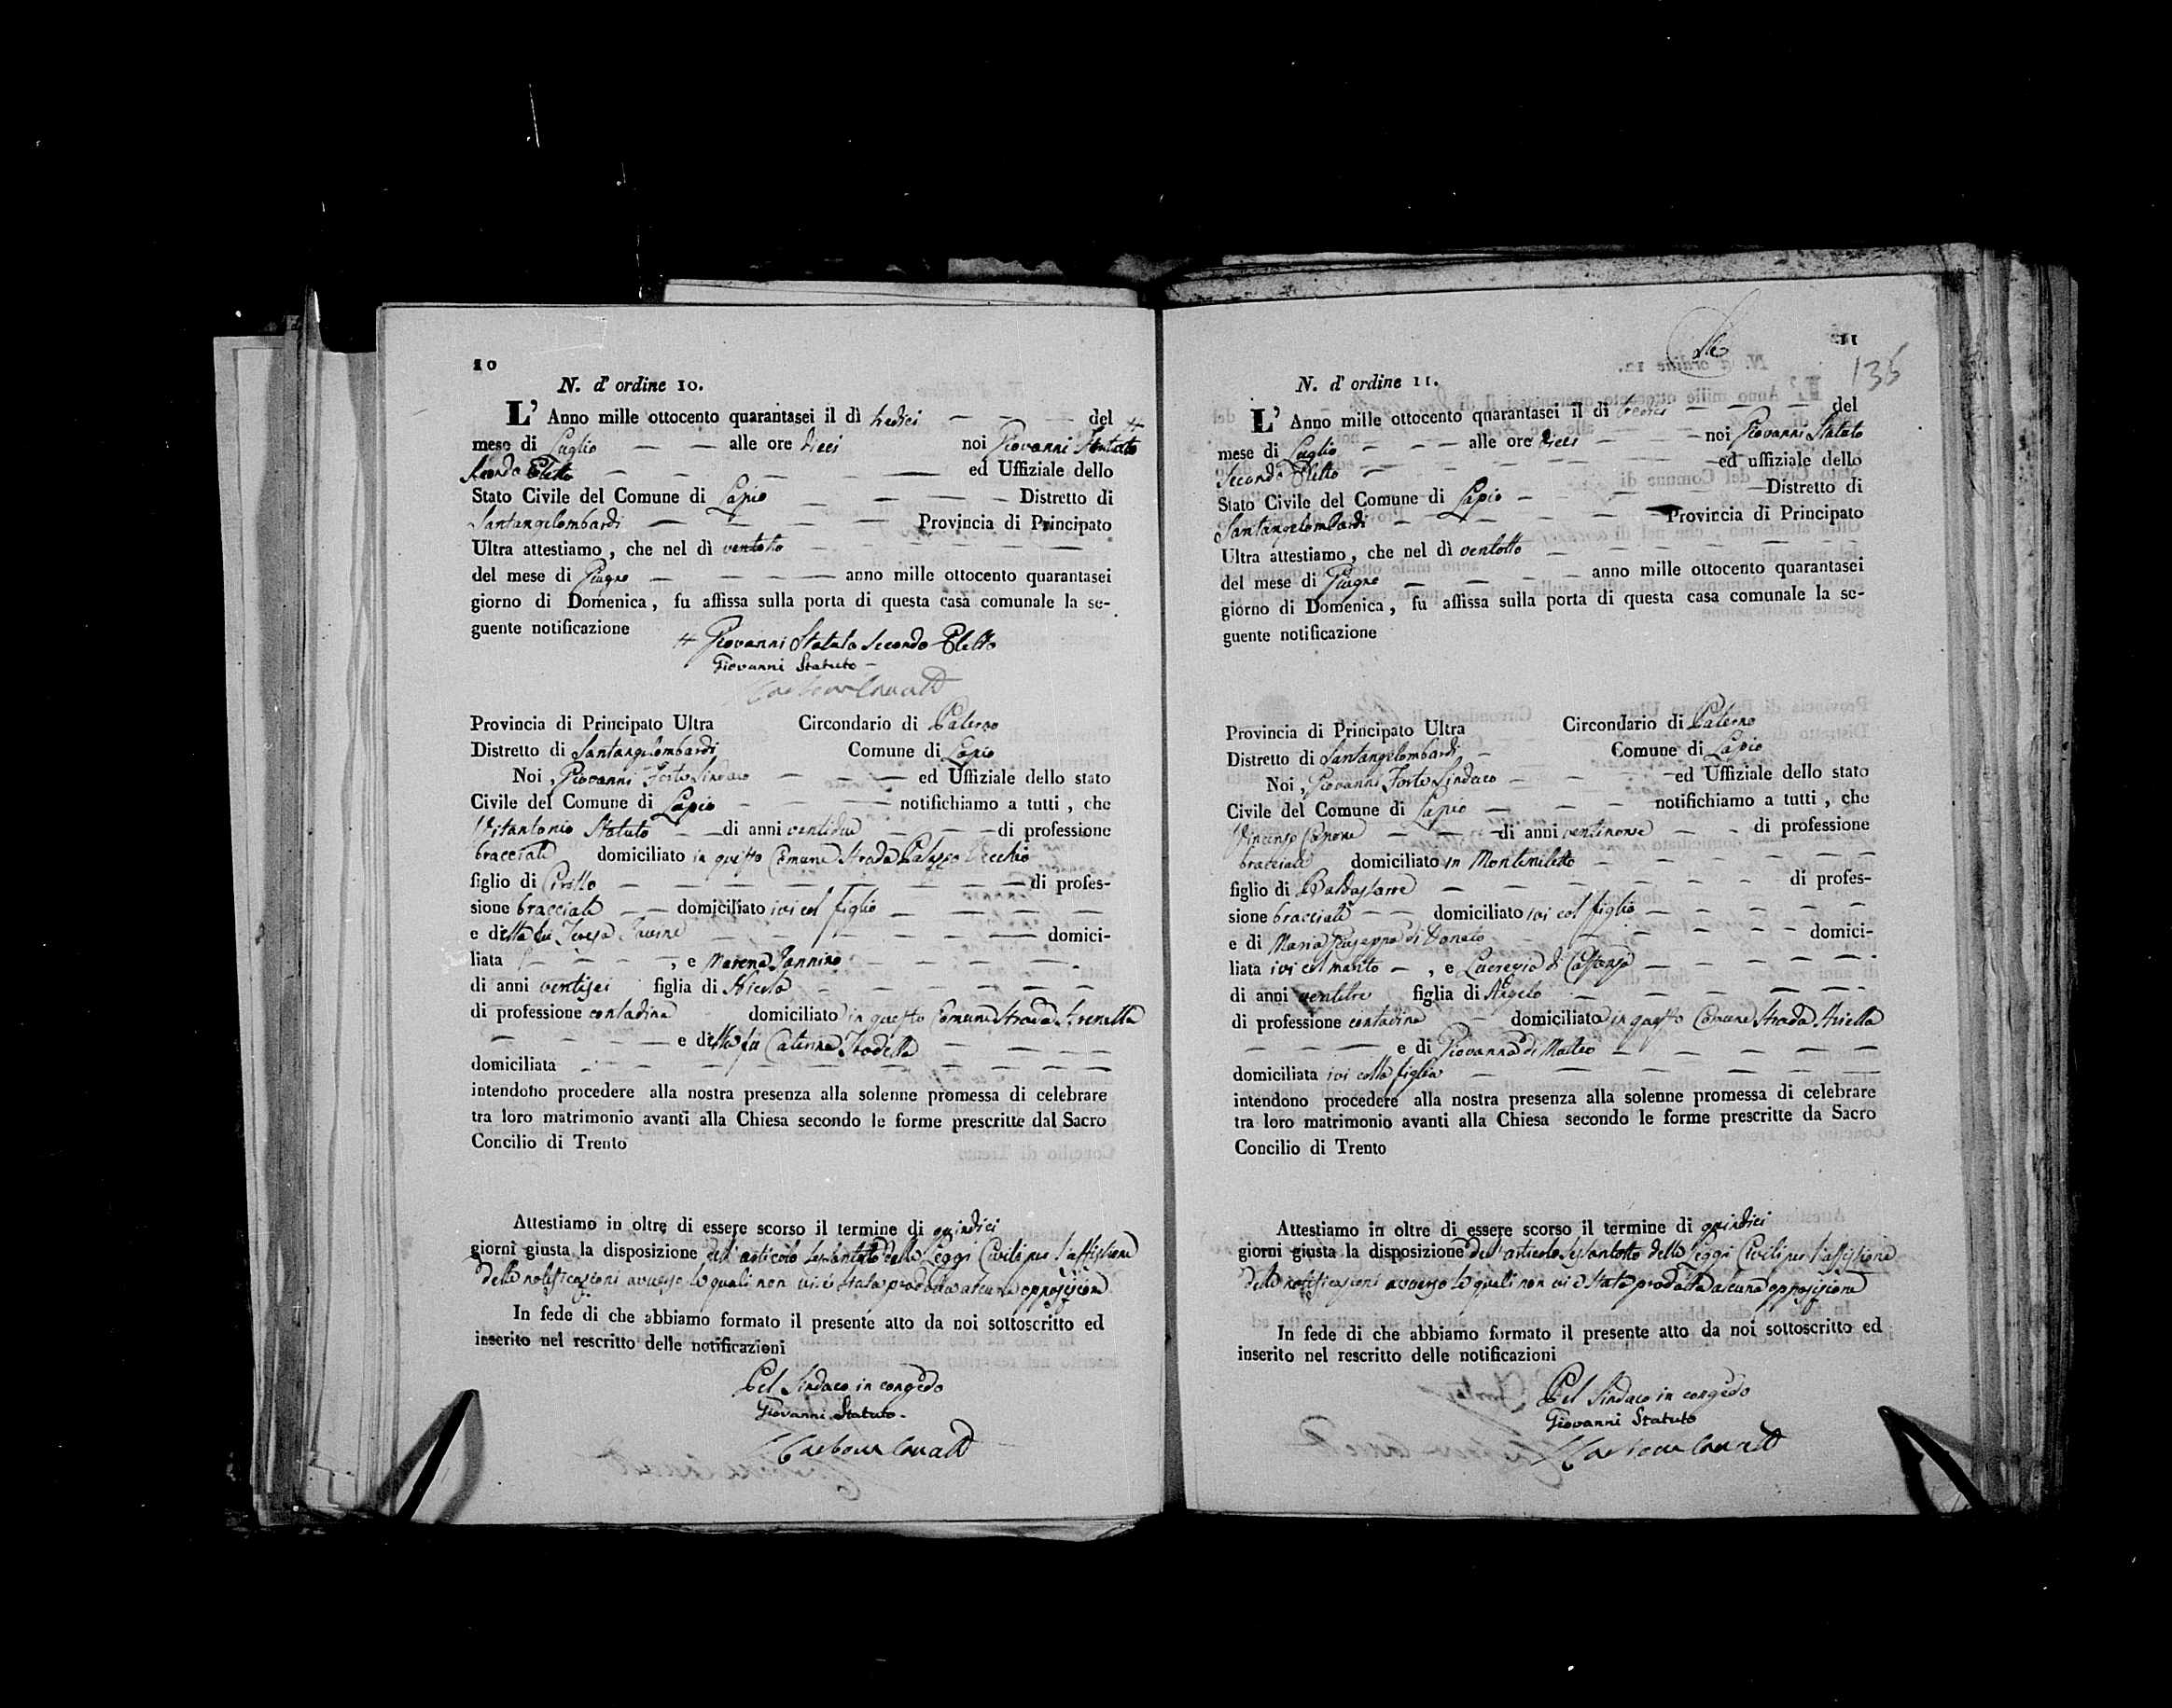 10
N. d' ordine 10.
L' Anno mille ottocento quarantasei il dì tredici del
mese di Luglio alle ore dieci noi Giovanni Statuto
Secondo Eletto ed Uffiziale dello
Stato Civile del Comune di Lapio Distretto di
Santangelombardi Provincia di Principato
Ultra attestiamo, che nel dì ventotto
del mese di Giugno anno mille ottocento quarantasei
giorno di Domenica, fu affissa sulla porta di questa casa comunale la se-
guente notificazione
# Giovanni Statuto Secondo Eletto
Giovanni Statuto
Provincia di Principato Ultra Circondario di Paterno
Distretto di Santangelombardi Comune di Lapio
Noi, Giovanni Forte Sindaco ed Uffiziale dello stato
Civile del Comune di Lapio notifichiamo a tutti, che
Vitantonio Statuto di anni ventidue di professione
bracciale domiciliato in questo Comune Strada Palazzo Vecchio
figlio di Cirillo di profes-
sione bracciale domiciliato ivi col figlio
e di Teresa domici-
liata , e Marena Iannino
di anni ventisei figlia di Nicola
di professione contadina domiciliato in questo Comune Strada
e della fu Caterina
domiciliata
intendono procedere alla nostra presenza alla solenne promessa di celebrare
tra loro matrimonio avanti alla Chiesa secondo le forme prescritte dal Sacro
Concilio di Trento
Attestiamo in oltre di essere scorso il termine di quindici
giorni giusta la disposizione dell'articolo sessantotto delle Leggi Civili per l'affissione
delle notificazioni avverso le quali non vi è stata prodotta alcuna opposizione
In fede di che abbiamo formato il presente atto da noi sottoscritto ed
inserito nel rescritto delle notificazioni
Pel Sindaco in congedo
Giovanni Statuto
11
135
N. d' ordine 11.
L' Anno mille ottocento quarantasei il di tredici del
mese di Luglio alle ore dieci noi Giovanni Statuto
Secondo Eletto ed uffiziale dello
Stato Civile del Comune di Lapio Distretto di
Santangelombardi Provincia di Principato
Ultra attestiamo, che nel dì ventotto
del mese di Giugno anno mille ottocento quarantasei
giorno di Domenica, fu affissa sulla porta di questa casa comunale la se-
guente notificazione
Provincia di Principato Ultra Circondario di Paterno
Distretto di Santangelombardi Comune di Lapio
Noi, Giovanni Forte Sindaco ed Uffiziale dello stato
Civile del Comune di Lapio notifichiamo a tutti, che
Vincenzo Capone di anni ventinove di professione
bracciale domiciliato in Montemiletto
figlio di Baldassarre di profes-
sione bracciale domiciliato ivi col figlio
e di Maria Giuseppa di Donato domici-
liata ivi col marito , e Lucrezia di
di anni ventitre figlia di Angelo
di professione contadina domiciliato in questo Comune Strada Ariella
e di Giovanna di Matteo
domiciliata ivi colla figlia
intendono procedere alla nostra presenza alla solenne promessa di celebrare
tra loro matrimonio avanti alla Chiesa secondo le forme prescritte da Sacro
Concilio di Trento
Attestiamo in oltre di essere scorso il termine di quindici
giorni giusta la disposizione dell'articolo sessantotto delle Leggi Civili per l'affissione
delle notificazioni avverso le quali non vi è stata prodotta alcuna opposizione
In fede di che abbiamo formato il presente atto da noi sottoscritto ed
inserito nel rescritto delle notificazioni
Pel Sindaco in congedo
Giovanni Statuto